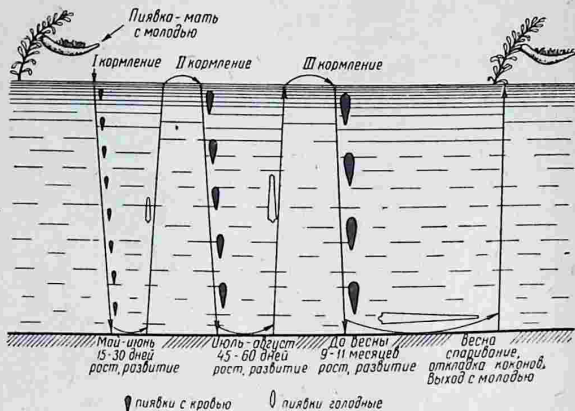 Пиявка-мать
с молодью
I кормление
II кормление
III кормление
Май-июнь
15-30 дней
рост, развитие
Июль-август
45-60 дней
рост, развитие
До весны
9-11 месяцев
рост, развитие
Весна
спаривание,
откладка коконов.
Выход с молодью
пиявки с кровью
пиявки голодные